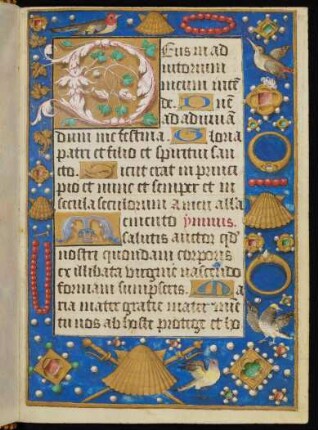 Deus in ad
iutorium
meum intē
de. Dne
ad adiuuā
dum me festina. Gloria
patri et filio et spiritui san
cto. Sicut erat in princi
pio et nunc et semper et in
secula seculorum amen alla
Memento ymnus.
salutis auctor qd
nostri quondam corporis
ex illibata virgine nascendo
formam sumpseris. Ma
ria mater gratie mater mīe
tu nos ab hoste protege et ho